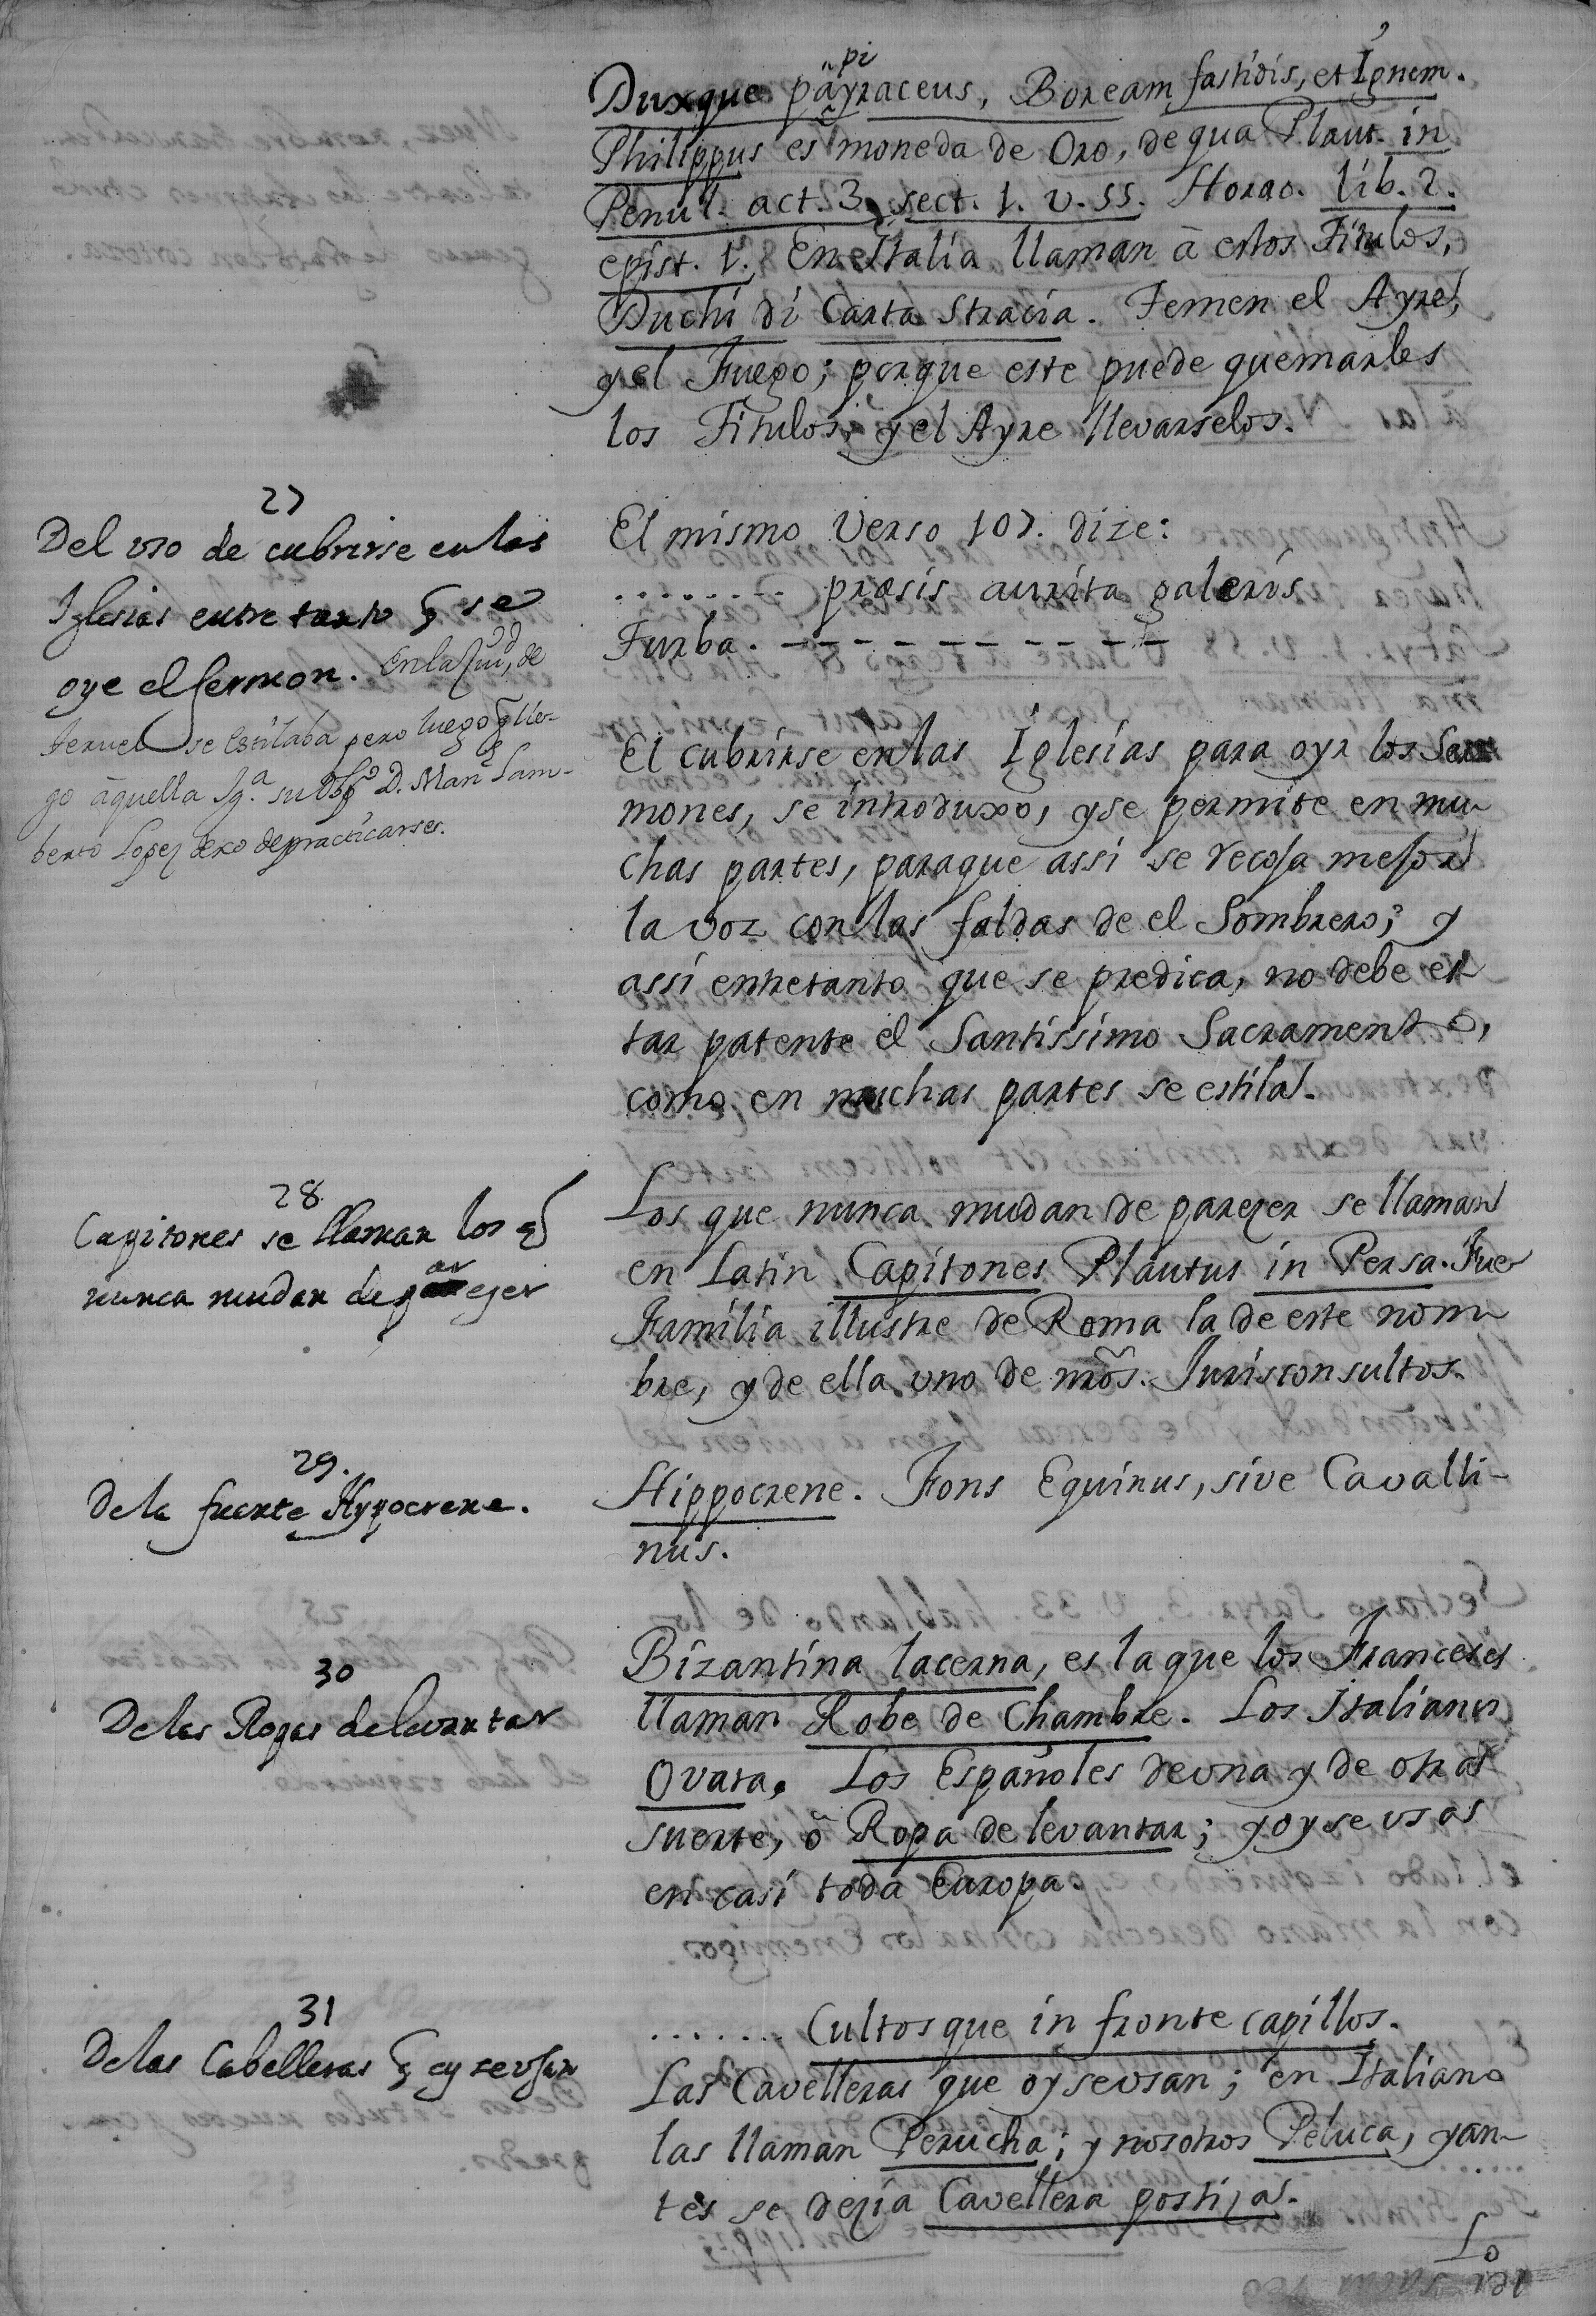 Duxque papiyraceus, Boream fastidis, et Ignem.
Philippus es moneda de Oro, de qua Plaut. in
Penul. act. 3. sect. 1. v. 55. Horac. lib. 2.
epist. 1. En Italia llaman â estos Titulos,
Duchi di Carta Stracia. Temen el Ayre,
y el Fuego; porque este puede quemarles
los Titulos, y el Ayre llevarselos.
27
Del vso de cubrirse en las
Iglesias entre tanto q̃ se
oye el sermon. En la Ciud, de
teruel se estilaba pero luego q̃ lle-
go âquella Ig.ª su Obpº D. Man.l Lam-
berto Lopez dexo de practicarse.
El mismo Verso 107. dize:
........ præsis aurita galeris
Turba. - - - - - - - - - - -
El cubrirse en las Iglesias para oyr los Ser
mones, se introduxo, y se permite en mu-
chas partes, paraque assi se recoja mejor
la voz con las faldas de el Sombrero; y
assi entretanto que se predica, no debe es
tar patente el Santissimo Sacramento,
como en muchas partes se estila.
28
Capitones se llaman los q̃
nunca mudan de parezer
Los que nunca mudan de parezer se llaman
en Latin Capitones Plautus in Persa. Fue
Familia illustre de Roma la de este nom-
bre, y de ella vno de nr̃os. Jurisconsultos.
29.
De la fuente Hypocrene.
Hippocrene. Fons Equinus, sive Cavalli-
nus.
30
De las Ropas de levantar
Bizantina lacerna, es la que los Franceses
llaman Robe de Chambre. Los Italianos
Ovata. Los Españoles de una y de otra
suerte, ô Ropa de levantar; y oy se vsa
en casi toda Europa.
31
De las Cabelleras q̃ oy se vsan
....... Cultosque in fronte capillos.
Las Cavelleras que oy se vsan; en Italiano
las llaman Perucha; y nosotros Peluca, y an-
tes se dezia Cavellera postiza.
Lo